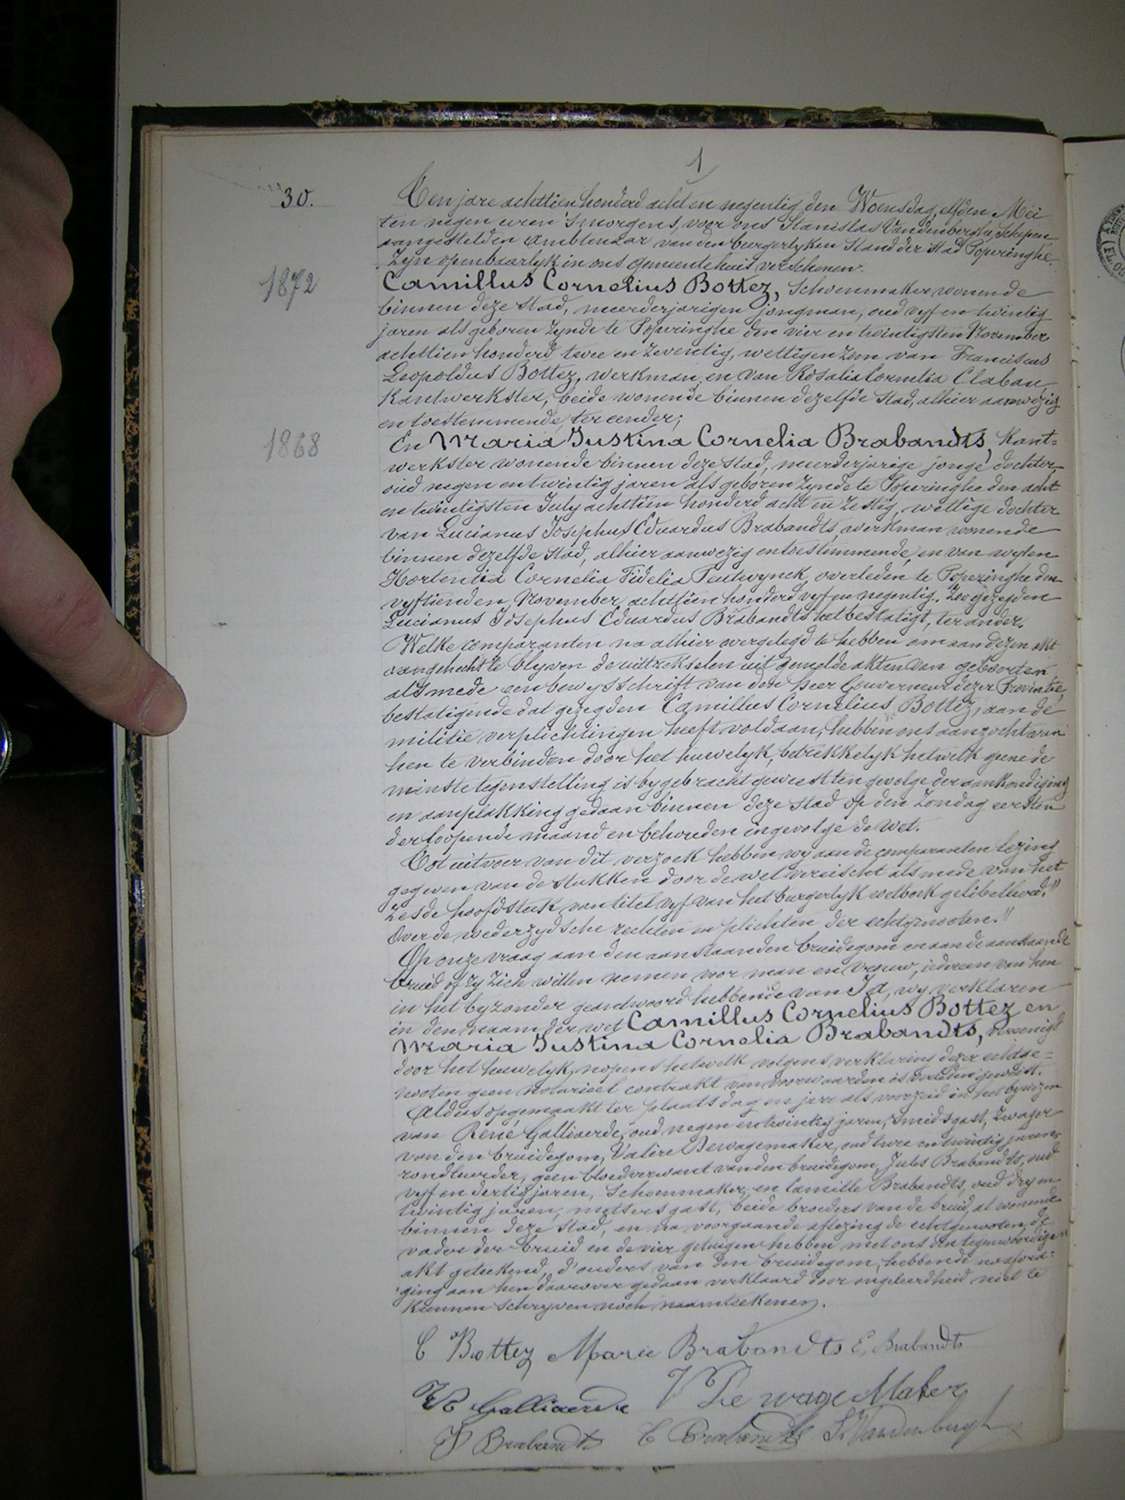 1
30.
Ten jare achttien honderd acht en negentig, den Woensdag, elfden Mei
ten negen uren 's morgens, voor ons Stanislas Vandenberghe, Schepen
aangestelden Ambtenaar van den burgerlyken Stand der stad Poperinghe
Zyn openbaarlyk in ons gemeentehuis verschenen:
1872
Camillus Cornelius Bottez, Schoenmaker, wonende
binnen deze stad, meerderjarigen jongman, oud vyf en twintig
jaren als geboren zynde te Poperinghe den vier en twintigsten November
achttien honderd twee en zeventig, wettigen zoon van Franciscus
Leopoldus Bottez, werkman, en van Rosalia Cornelia Clabau
Kantwerkster, beide wonende binnen dezelfde stad, alhier aanwezig
en toestemmende, ter eender;
1868
En Maria Justina Cornelia Brabandts, Kant=
werkster wonende binnen deze stad, meerderjarige jonge dochter,
oud negen en twintig jaren als geboren zynde te Poperinghe den acht
en twintigsten July achttien honderd acht en zestig, wettige dochter
van Lucianus Josephus Eduardus Brabandts, werkman wonende
binnen dezelfde stad, alhier aanwezig en toestemmende, en van wylen
Hortentia Cornelia Fidelia overleden te Poperinghe den
vyftienden November achttien honderd vyf en negentig. Zoo gezeyden
Lucianus Josephus Eduardus Brabandts het bestatigt, ter ander.
Welke comparanten na alhier overgelegd te hebben om aan dezen akt
aangehecht te blyven de uittreksels uit gemelde akten van geboorten
alsmede een bewysschrift van den Heer Gouverneur dezer Provintie,
bestatigende dat gezegden Camillus Cornelius Bottez, aan de
militie verplichtingen heeft voldaan, hebben ons aanzocht van
hen te verbinden door het huwelyk, betrekkelyk hetwelk geene de
minste tegenstelling is bygebracht geweest ten gevolge der aankondiging
en aanplakking gedaan binnen deze stad op den Zondag eersten
der loopende maand en behouden ingevolge de wet.
Tot uitvoer van dit verzoek hebben wy aan de comparanten lezing
gegeven van de stukken door de wet vereischt als mede van het
zesde hoofdstuk, van titel vyf van het burgerlyk wetboek getiteld
Over de wederzydsche rechten en plichten der echtgenooten."
Op onze vraag aan den aanstaanden bruidegom en aan de aanstaande
bruid of zy zich willen nemen voor man en vrouw, iedereen van hen
in het byzonder geantwoord hebbende van Ja, wy verklaren
in den naam der wet Camillus Cornelius Bottez en
Maria Justina Cornelia Brabandts, vereenigd
door het huwelyk, nopens hetwelk volgens verklaring dezer echtge=
nooten geen notarieel contrakt van voorwaarden is verleden geweest.
Aldus opgemaakt ter plaats dag en jare als voorzeid in het bywezen
van René Galliaerde, oud negen en twintig jaren, smidsgast, zwager
van den bruidegom, Valère Dewagemaker, oud twee en twintig jaren,
geen bloedverwant van den bruidegom, Jules Brabandts, oud
vyf en dertig jaren, Schoenmaker, en Camille Brabandts, oud dry en
twintig jaren, metsersgast, beide broeders van de bruid, al wonende
binnen deze stad, en na voorgaande aflezing de echtgenooten, de
vader der bruid en de vier getuigen hebben met ons den tegenwoordigen
akt geteekend, d'ouders van den bruidegom, hebbende navord=
ging aan hen daarover gedaan verklaard door ongeleerdheid niet te
kunnen schryven noch naamteekenen.
C Bottez Marie Brabandts E. Brabandts
R Galliaerde V De wage Maker
J Brabandts C Brabandts S. Vandenberghe